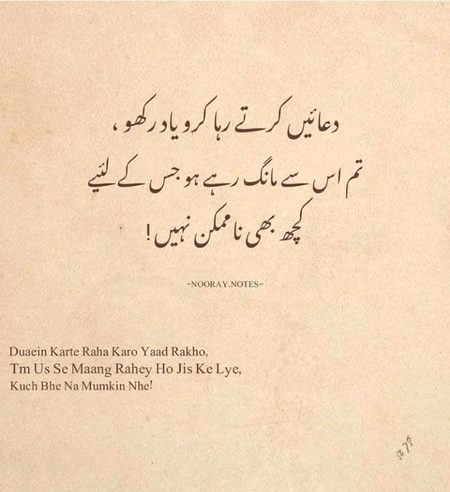 دعائیں کرتے رہا کرو یاد رکھو ،
تم اس سے مانگ رہے ہو جس کے لئیے
کچھ بھی ناممکن نہیں!
-NOORAY.NOTES-
Duaein Karte Raha Karo Yaad Rakho,
Tm Us Se Maang Rahey Ho Jis Ke Lye,
Kuch Bhe Na Mumkin Nhe!